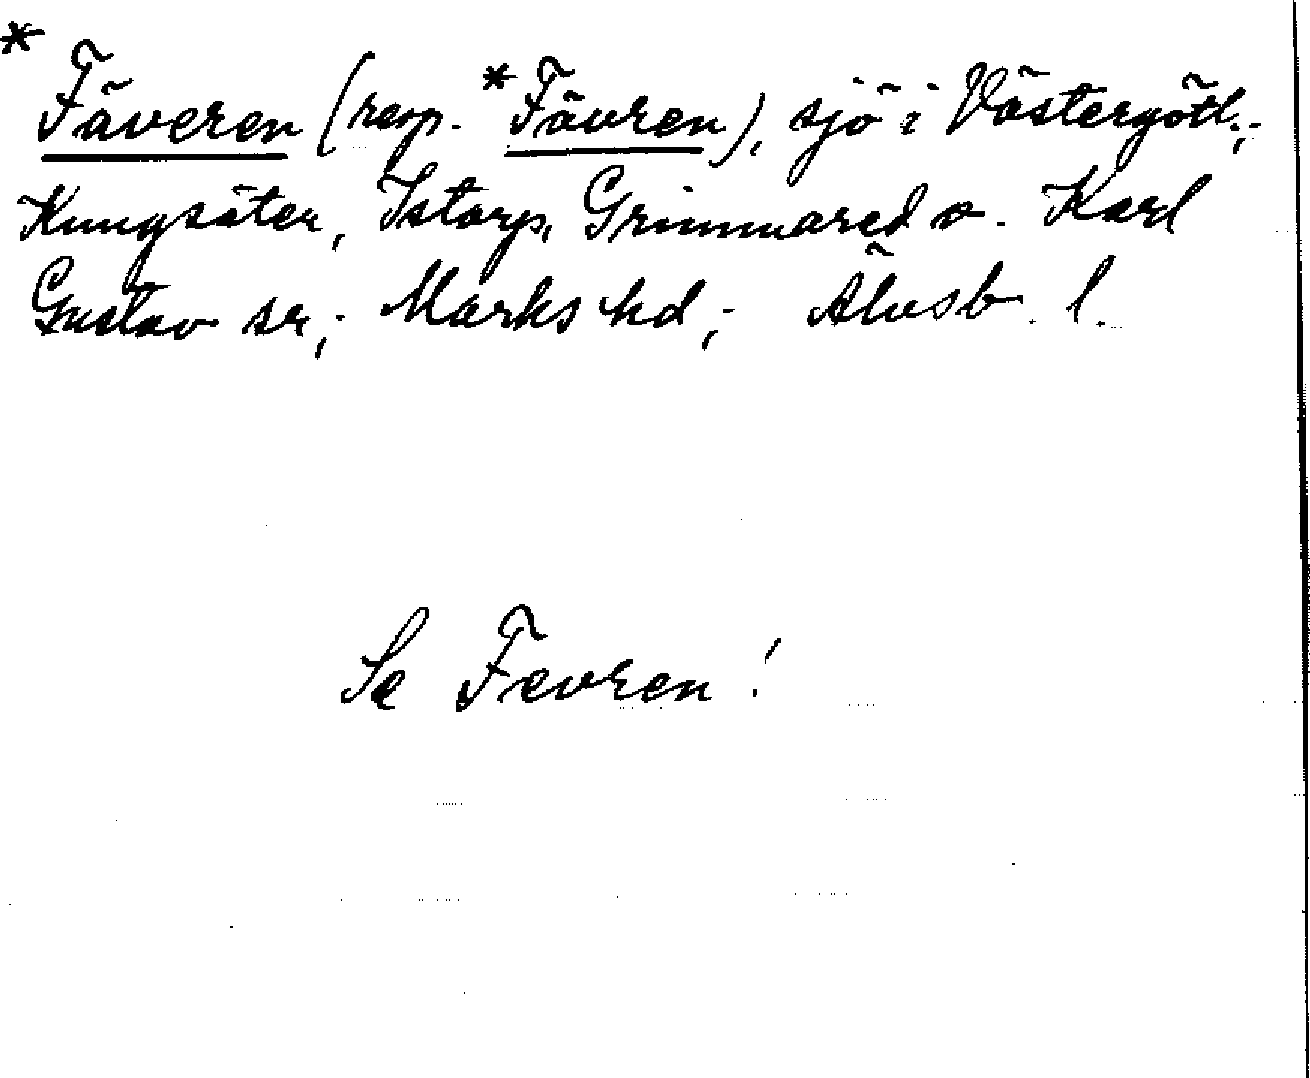 *Fäveren (resp. *Fävren), sjö i Västergötl.;
Kungsäter, Istorp, Grimmared o. Karl
Gustav sn; Marks hd; Älvsb. l.
Se Fevren!